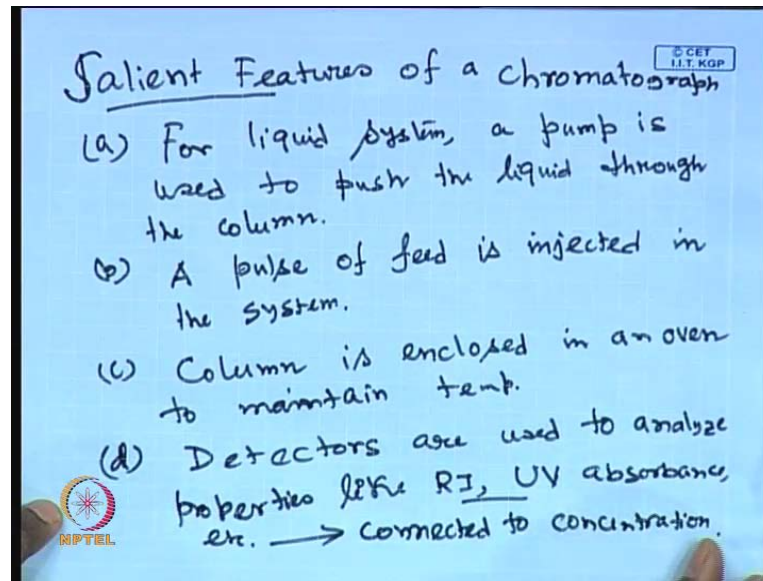 Salient Features of a chromatograph
© CET
I.I.T. KGP
(a) For liquid system, a pump is
used to push the liquid through
the column.
(b) A pulse of feed is injected in
the system.
(c) Column is enclosed in an oven
to maintain temp.
(d) Detectors are used to analyze
properties like RI, UV absorbance,
etc. → connected to concentration.
NPTEL